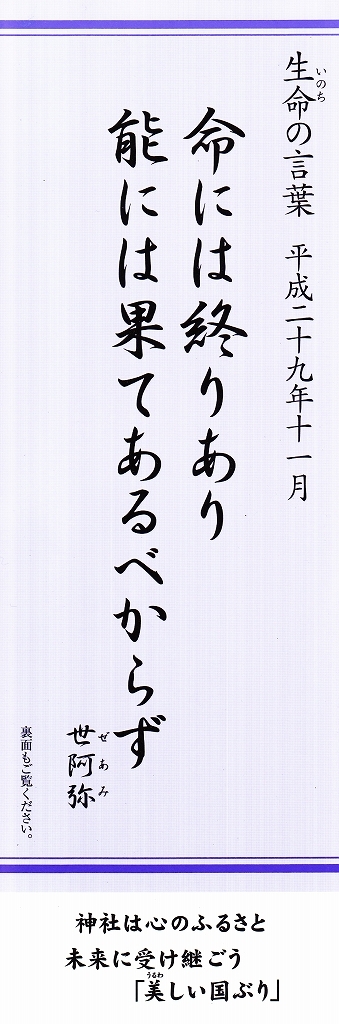 生命の言葉　平成二十九年十一月
いのち
命には終りあり
能には果てあるべからず
世阿弥
ぜあみ
裏面もご覧ください。
神社は心のふるさと
未来に受け継ごう
「美しい国ぶり」
うるわ